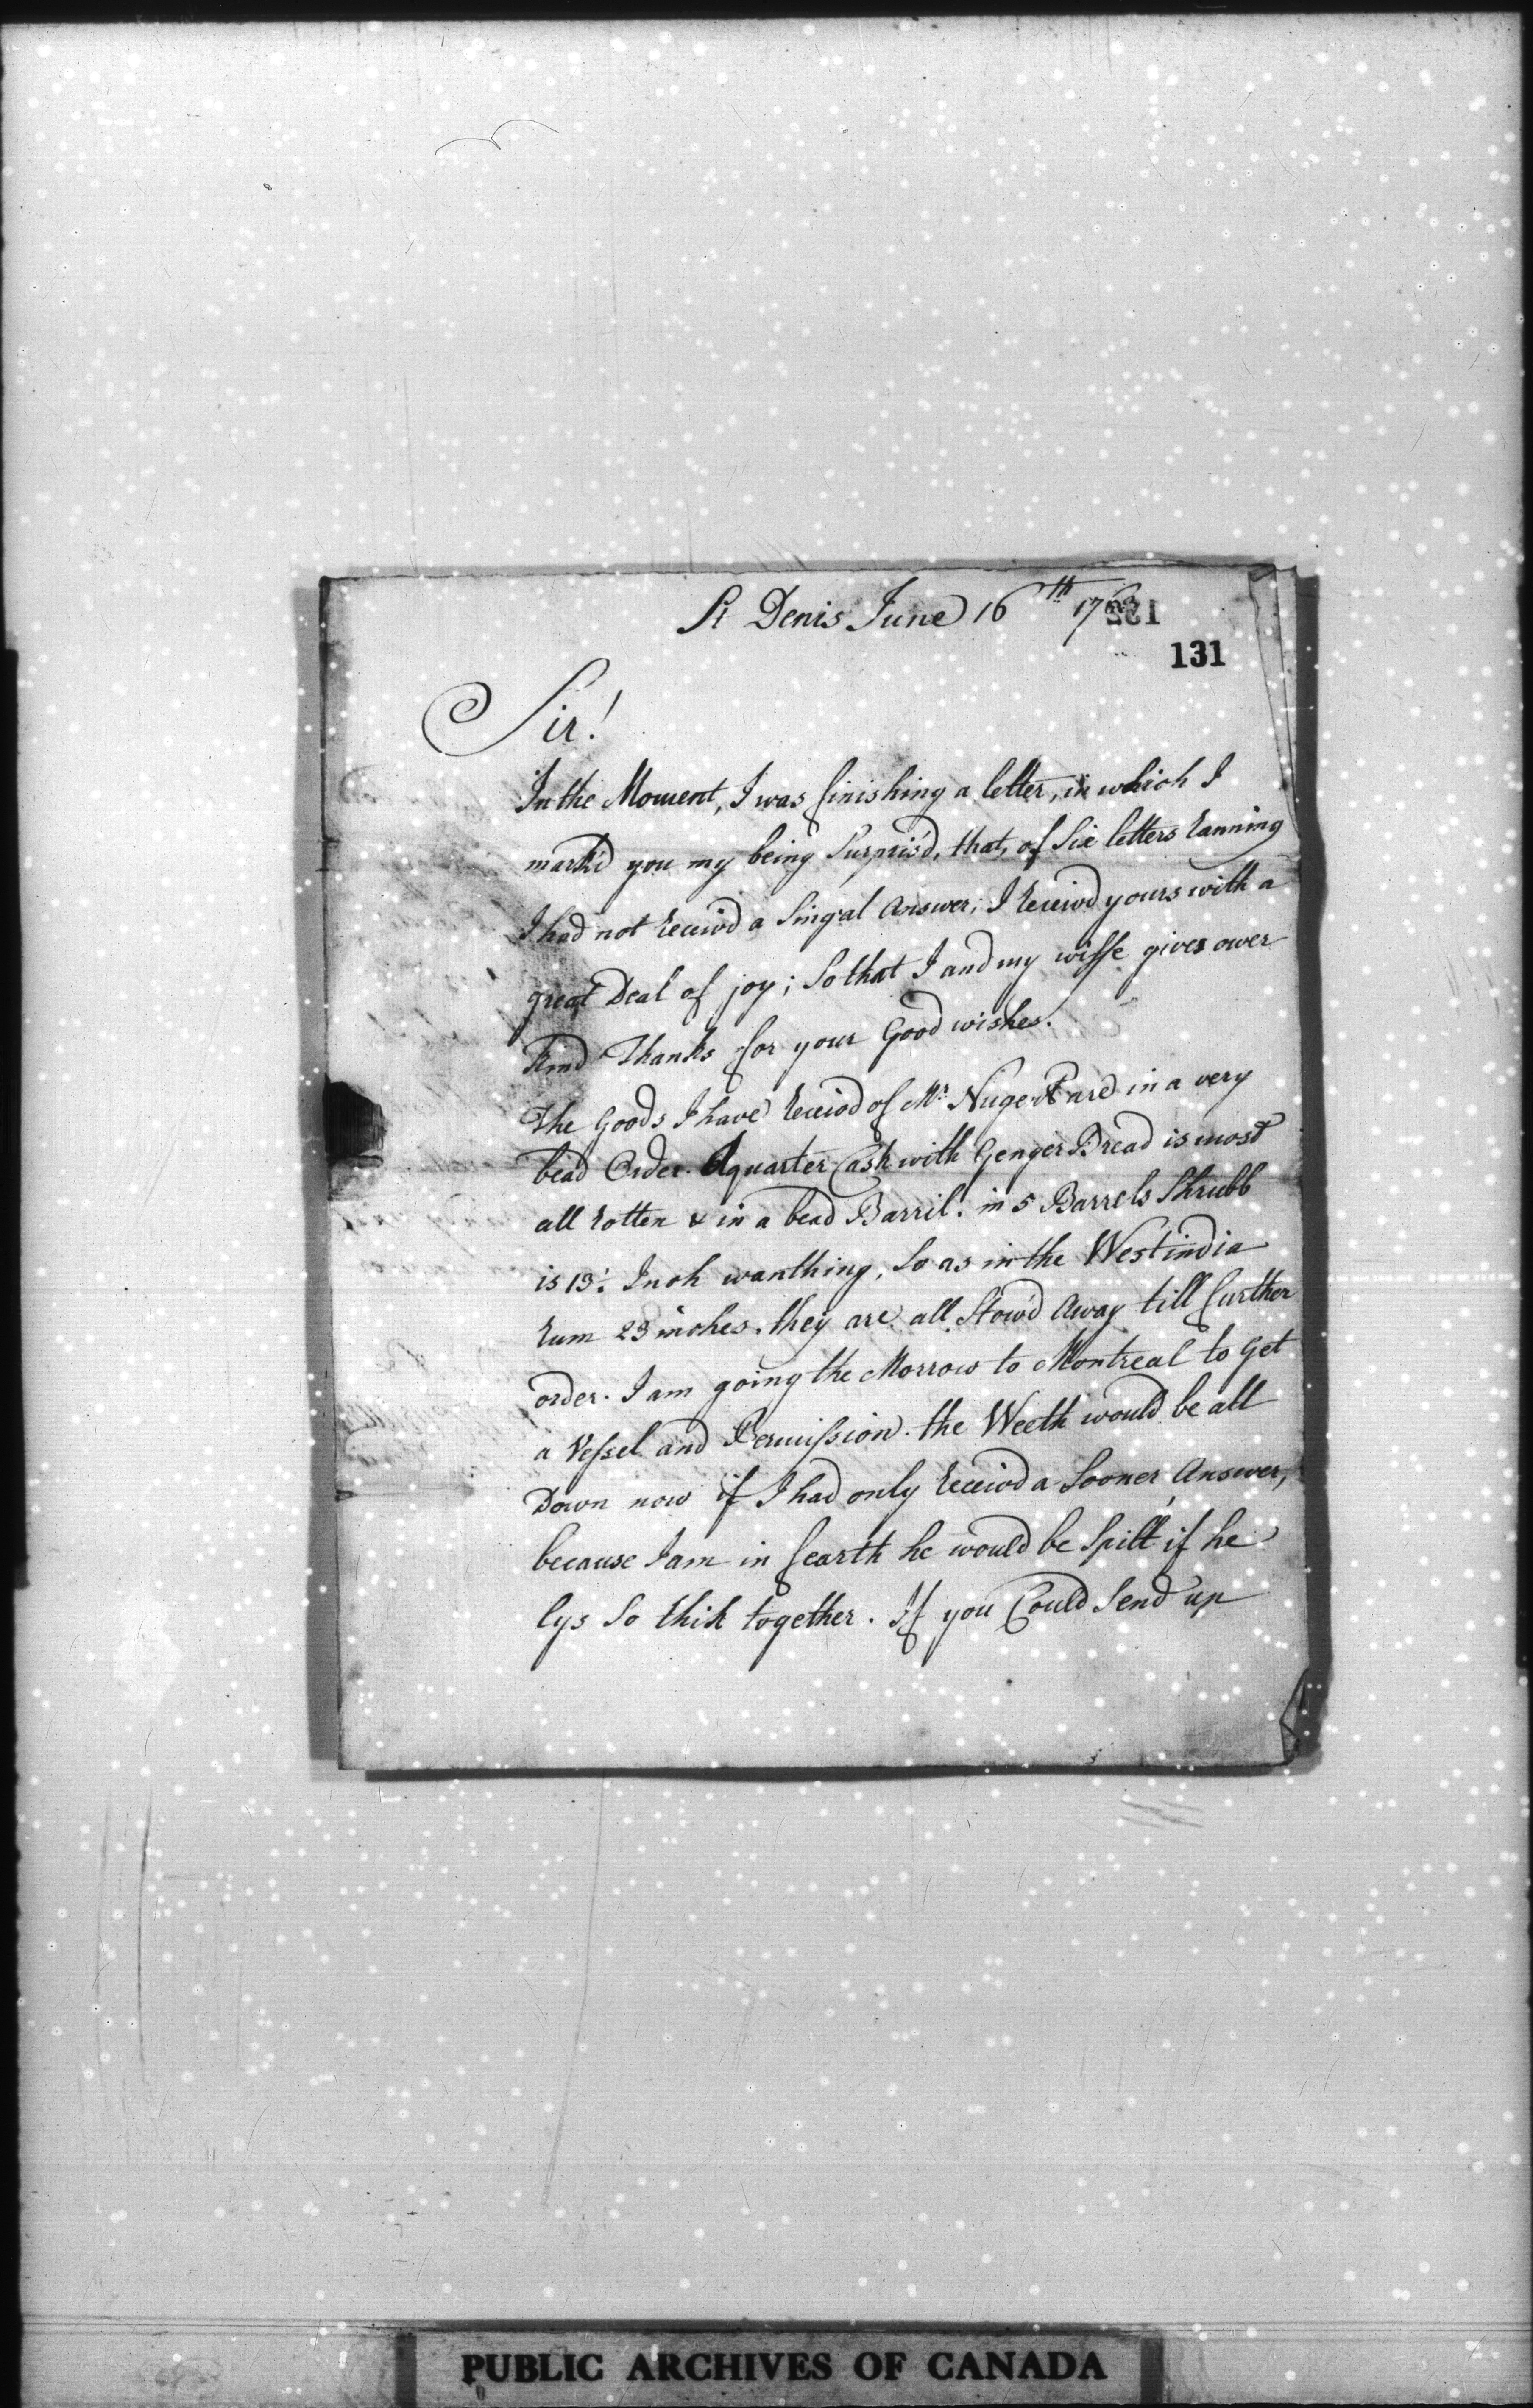 St Denis June 16th 176
132
131
Sir!
In the Moment, I was finishing a letter, in which I
mark'd you my being Surpris'd, that, of Six letters Ranning
I had not Receiv'd a Singal Answer; I Receiv'd yours with a
great Deal of joy; So that I and my wiffe gives ower
Kind Thanks for your Good wishes.
The Goods I have Receiv'd of Mr. Nugent are in a very
bead Order. A quarter Cask with Genger Bread is most
all Rotten & in a bead Barril. in 5 Barrels Shrubb
is 13. Inch wanthing, So as in the Westindia
Rum 23 inches. they are all Stow'd Away till further
order. I am going the Morrow to Montreal to Get
a Vessel and Permission. the Weeth would be all
Down now if I had only Receiv'd a Sooner Answer,
because I am in fearth he would be Spilt if he
lys So thik together. If you Could Send up
PUBLIC ARCHIVES OF CANADA